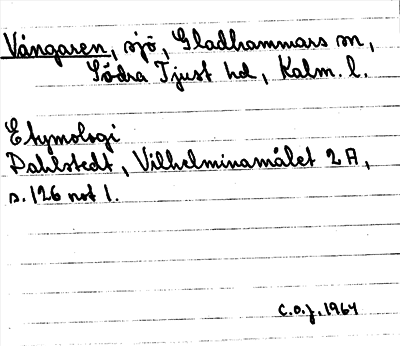 Vångaren, sjö, Gladhammars sn,
Södra Tjust hd, Kalm. l.
Etymologi
Dahlstedt, Vilhelminamålet 2 A,
s. 126 not 1.
C.O.J. 1964